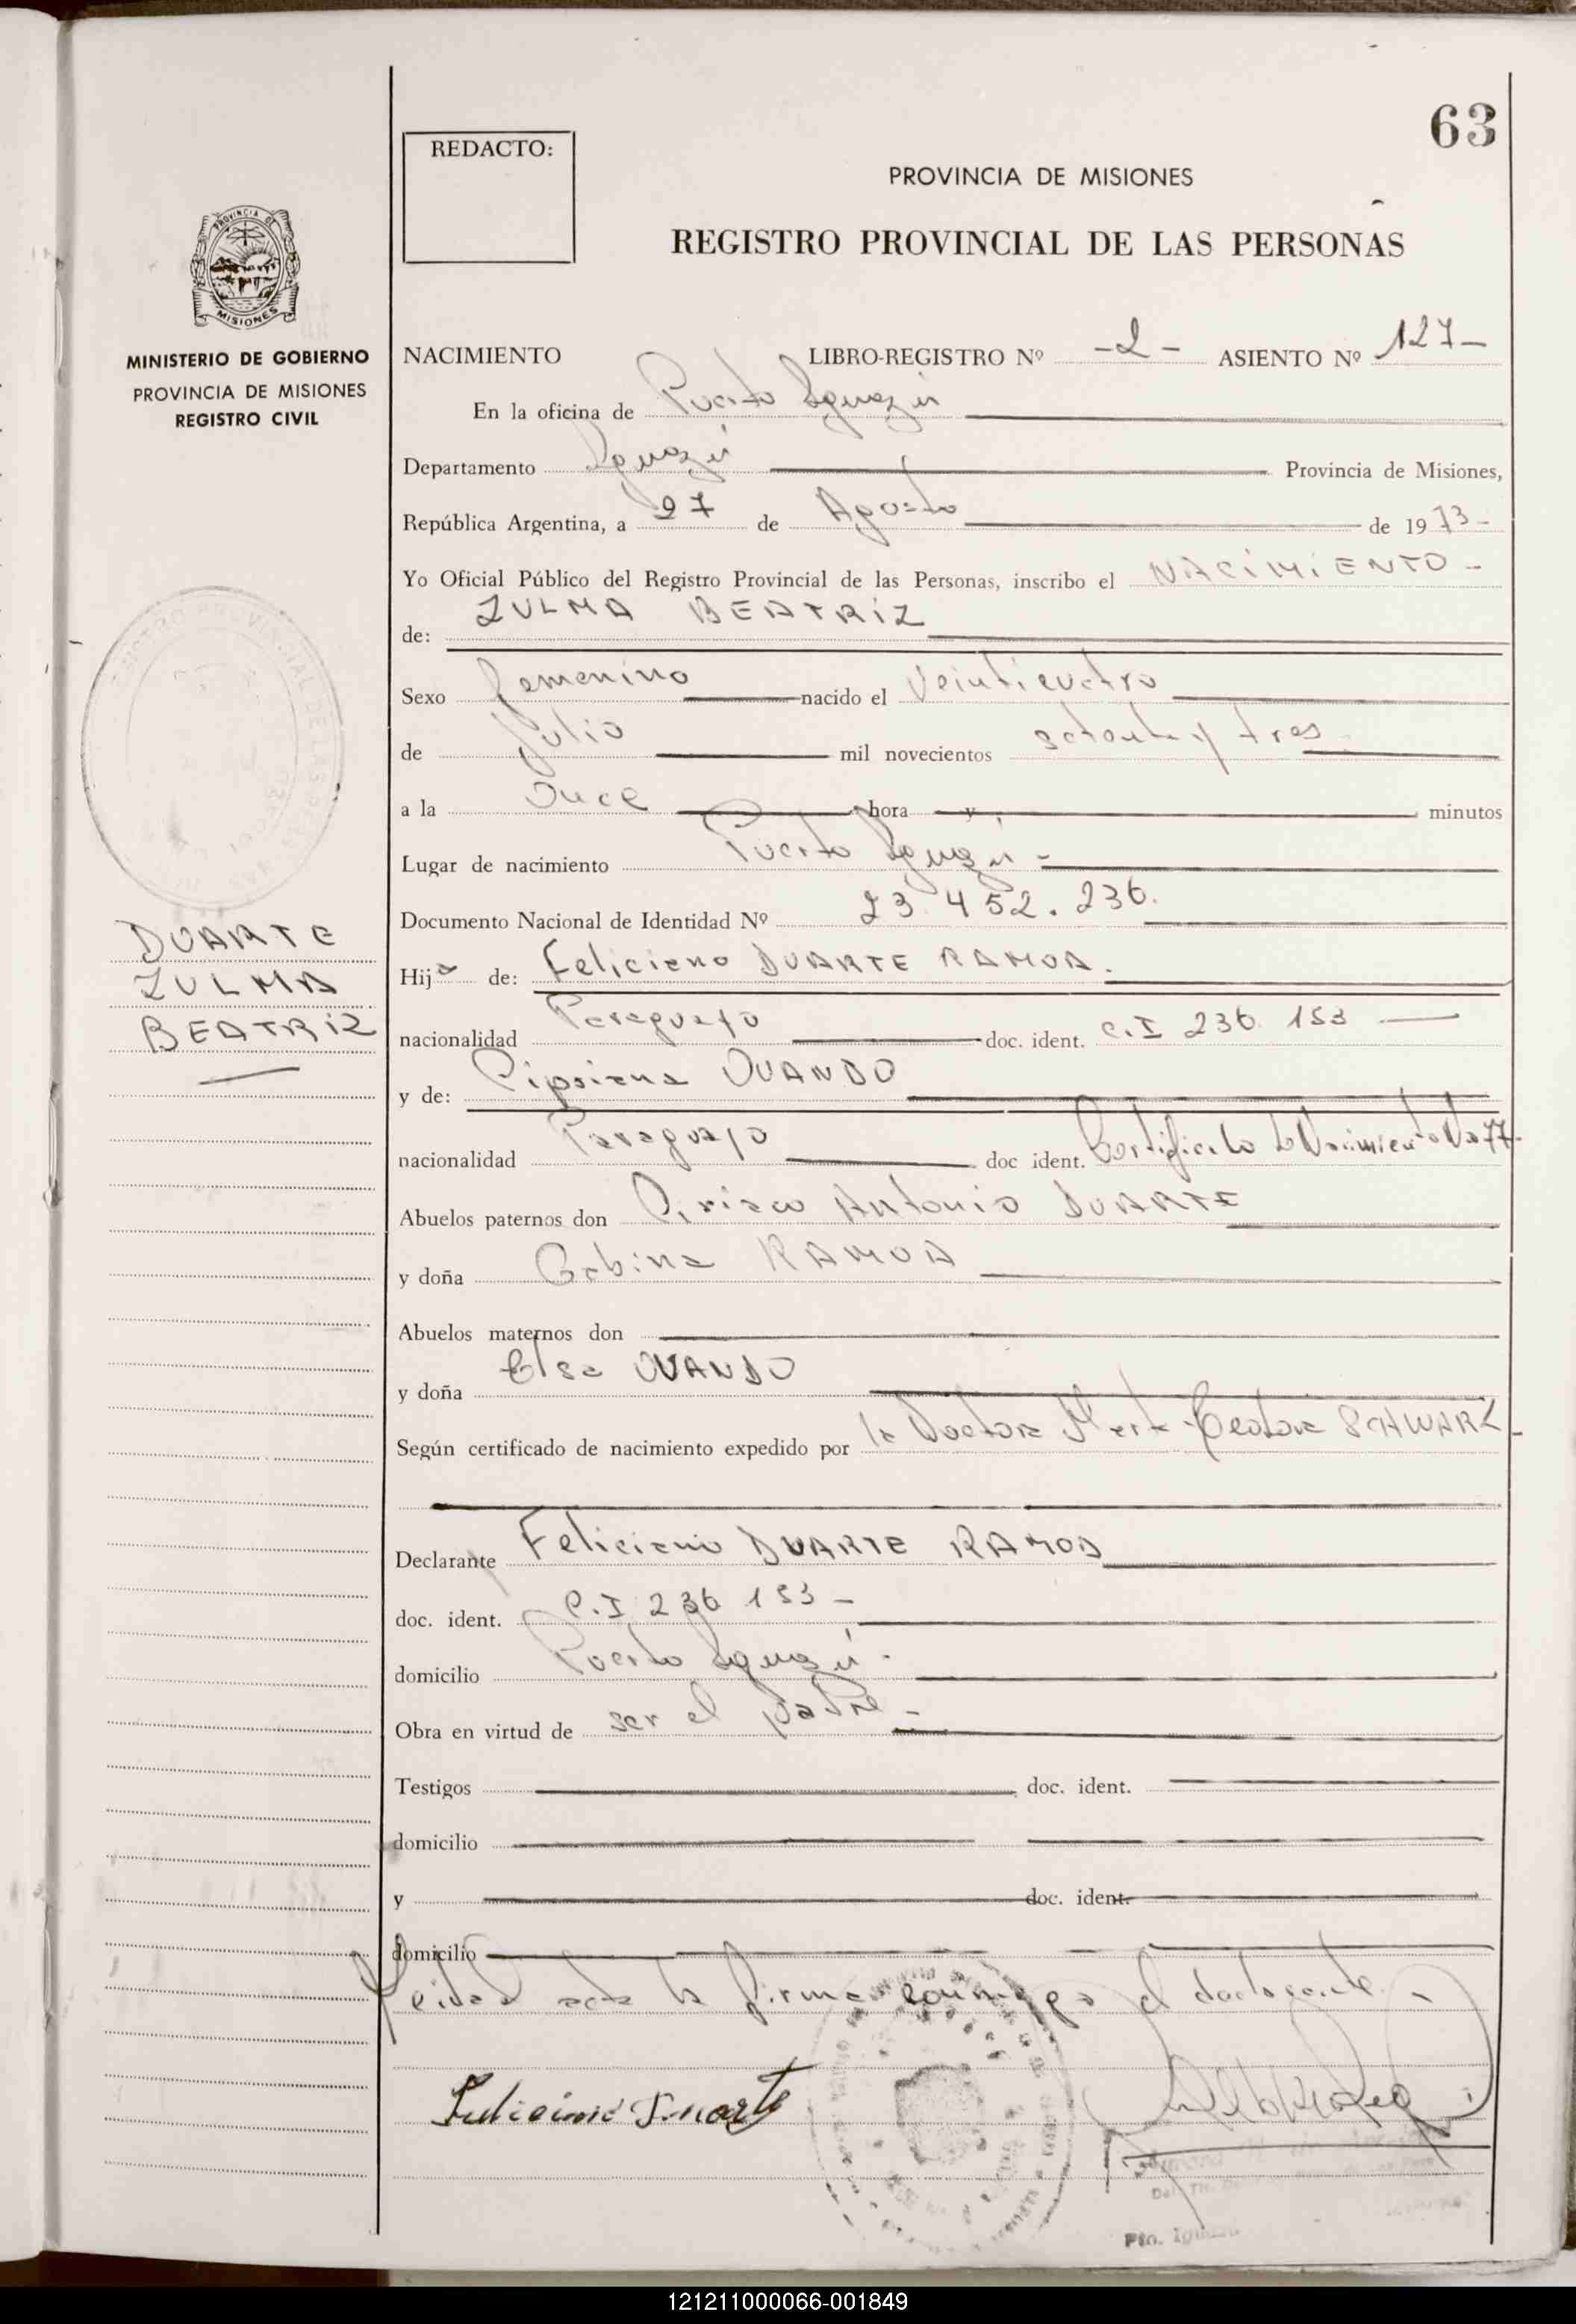 63
REDACTO:
PROVINCIA DE MISIONES
REGISTRO PROVINCIAL DE LAS PERSONAS
PROVINCIA DE
MISIONES
MINISTERIO DE GOBIERNO
PROVINCIA DE MISIONES
REGISTRO CIVIL
NACIMIENTO LIBRO-REGISTRO Nº -2- ASIENTO Nº 127-
En la oficina de Puerto Iguazú
Departamento Iguazú Provincia de Misiones,
República Argentina, a 27 de Agosto de 1973-
Yo Oficial Público del Registro Provincial de las Personas, inscribo el NACIMIENTO -
de: ZULMA BEATRIZ
Sexo femenino nacido el Veinticuatro
de Julio mil novecientos setenta y tres
a la Once hora y minutos
Lugar de nacimiento Puerto Iguazú -
Documento Nacional de Identidad Nº 23.452.236.
DUARTE
ZULMA
BEATRIZ
Hija de: Feliciano DUARTE RAMOA.
nacionalidad Paraguayo doc. ident. C.I 236.153
y de: OVANDO
nacionalidad Paraguaya doc ident. Certificado de Nacimiento No 77-
Abuelos paternos don Antonio DUARTE
y doña Gabina RAMOA
Abuelos maternos don
y doña Elsa OVANDO
Según certificado de nacimiento expedido por la Doctora Marta SCHWARZ -
Declarante Feliciano DUARTE RAMOA
doc. ident. C.I 236 153 -
domicilio Puerto Iguazú.
Obra en virtud de ser el padre -
Testigos doc. ident.
domicilio
y doc. ident.
domicilio
Leída acta la firma conmigo el declarante -
Feliciano Duarte
Pto. Iguazú
121211000066-001849